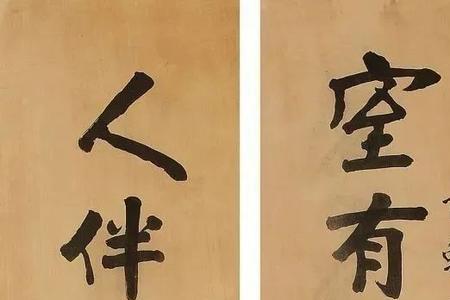 室有
人伴